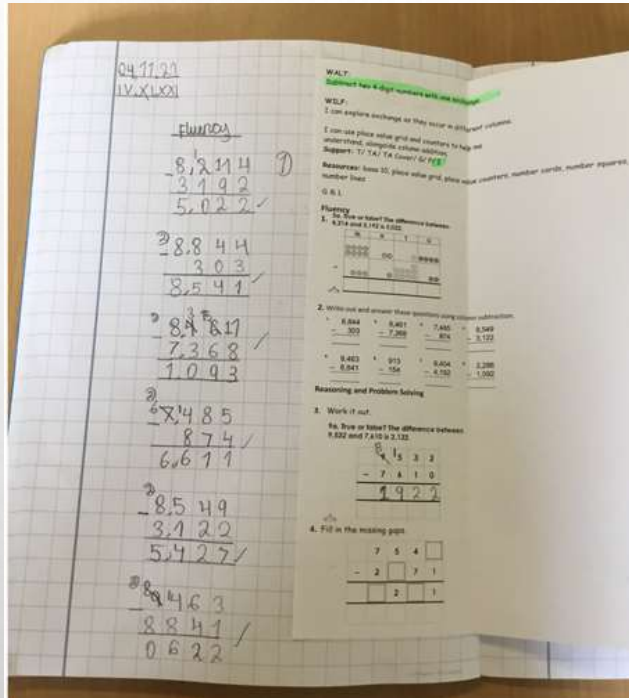 04.11.21
IV.XI.XXI
Fluency
8,2114
- 3192
5,022
8,844
- 303
8,541
7,368
1,093
7,1485
874
6,611
- 8,549
3,122
5,427
8841
0622
WALT:
Subtract two 4-digit numbers with one exchange
WILF:
I can explore exchange as they occur in different columns.
I can use place value grid and counters to help me
understand, alongside column addition.
Support: T/ TA/ TA Cover/ G/
Resources: base 10, place value grid, place value counters, number cards, number squares,
number lines
Fluency
1. 5a. True or false? The difference between
8,214 and 3,192 is 5,022.
2. Write out and answer these questions using column subtraction.
8,844 8,461 7,485 8,549
- 303 - 7,368 - 874 - 3,122
9,463 913 9,404 3,286
- 8,841 - 154 - 4,192 - 1,092
Reasoning and Problem Solving
3. Work it out.
9a. True or false? The difference between
9,532 and 7,610 is 2,122.
8 1 5 3 2
- 7 6 1 0
1 9 2 2
4. Fill in the missing gaps
7 5 4
- 2 7 1
2 1